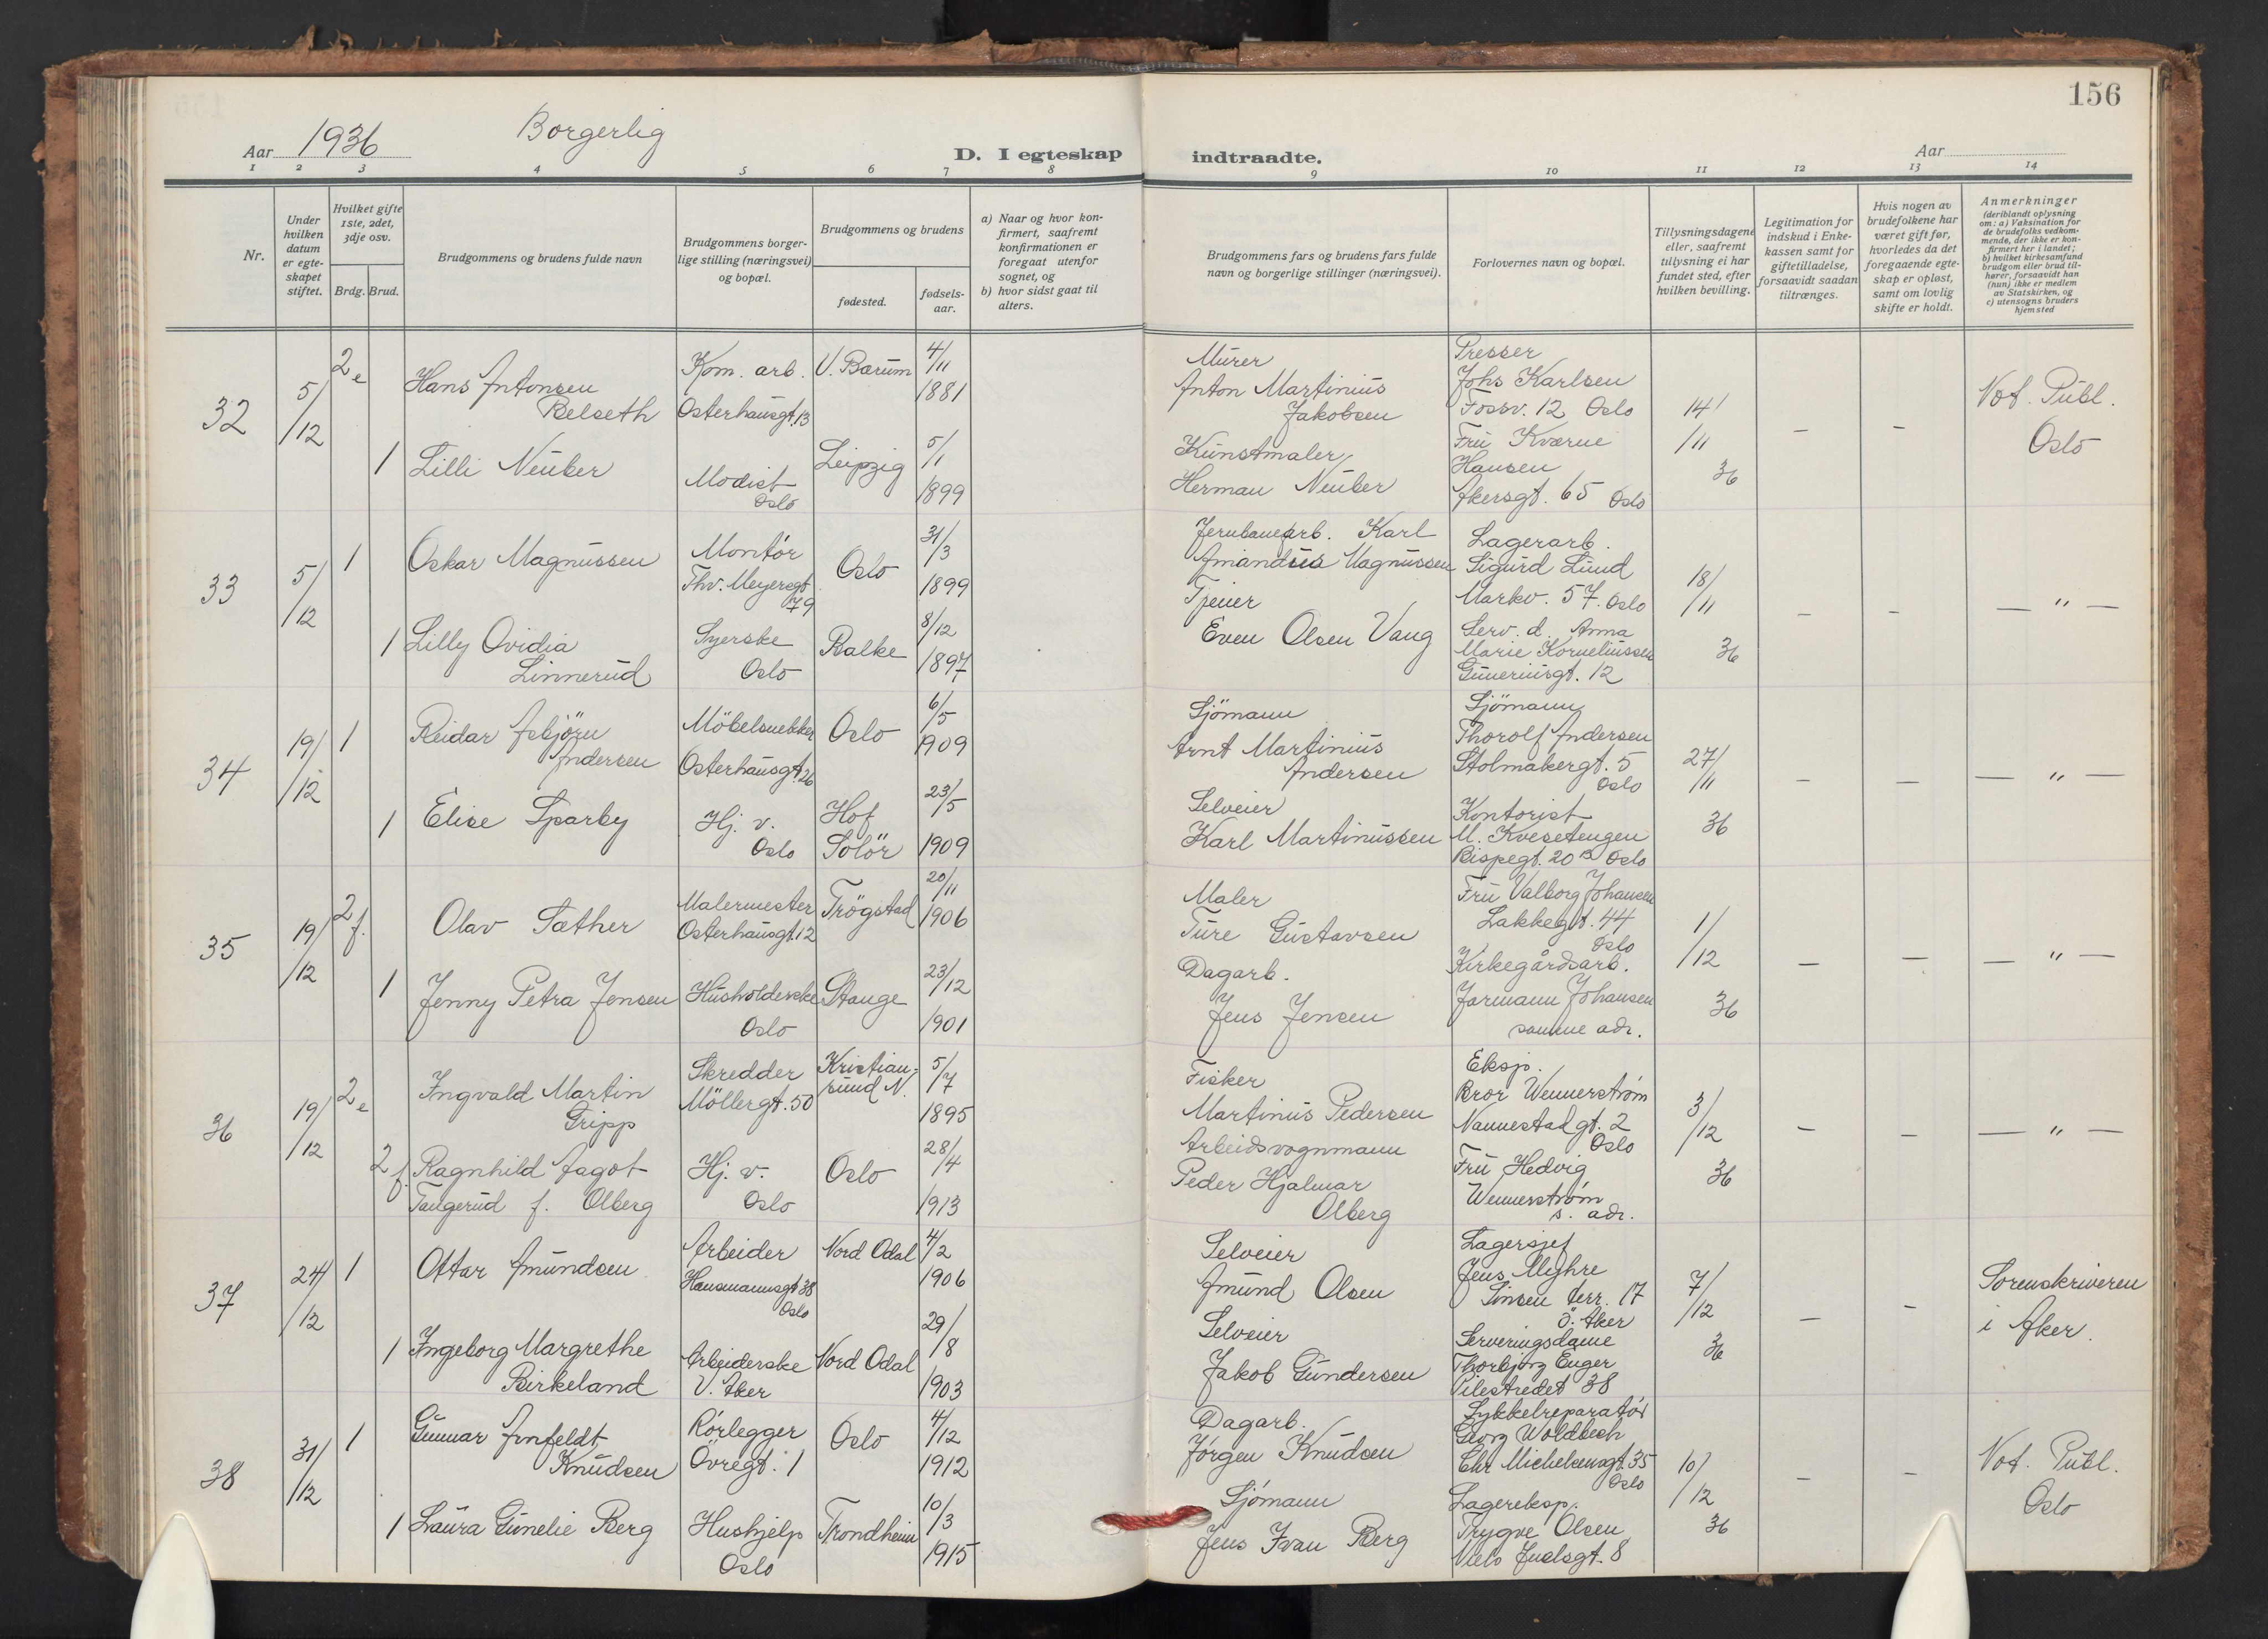 156
Aar 1936
Borgerlig
D. I egteskap
indtraadte.
Aar
1 2 3 4 5 6 7 8 9 10 11 12 13 14
Nr.
Under
hvilken
datum
er egte-
skapet
stiftet.
Hvilket gifte
1ste, 2det,
3dje osv.
Brdg. Brud.
Brudgommens og brudens fulde navn
Brudgommens borger-
lige stilling (næringsvei)
og bopæl.
Brudgommens og brudens
fødested.
fødsels-
aar.
a) Naar og hvor kon-
firmert, saafremt
konfirmationen er
foregaat utenfor
sognet, og
b) hvor sidst gaat til
alters.
Brudgommens fars og brudens fars fulde
navn og borgerlige stillinger (næringsvei).
Forlovernes navn og bopæl.
Tillysningsdagene
eller, saafremt
tillysning ei har
fundet sted, efter
hvilken bevilling.
Legitimation for
indskud i Enke-
kassen samt for
giftetilladelse,
forsaavidt saadan
tiltrænges.
Hvis nogen av
brudefolkene har
været gift før,
hvorledes da det
foregaaende egte-
skap er opløst,
samt om lovlig
skifte er holdt.
Anmerkninger
(deriblandt oplysning
om: a) Vaksination for
de brudefolks vedkom-
mende, der ikke er kon-
firmert her i landet;
b) hvilket kirkesamfund
brudgom eller brud til-
hører, forsaavidt han
(hun) ikke er medlem
av Statskirken, og
c) utensogns bruders
hjemsted
32
5/12
2e
Hans Antonsen
Belseth
Kom. arb.
Osterhausgt. 13
V. Bærum
4/11
1881
Murer
Anton Martinius
Jakobsen
Presser
Johs Karlsen
Fossv. 12 Oslo
14/11
36
–
–
Not. Publ.
Oslo
1
Lilli Neuber
Modist
Oslo
Leipzig
5/1
1899
Kunstmaler
Herman Neuber
Fru Kværne
Hansen
Akersgt. 65 Oslo
33
5/12
1
Oskar Magnussen
Montør
Thv. Meyersgt
79
Oslo
31/3
1899
Jernbanearb. Karl
Amandus Magnussen
Lagerarb.
Sigurd Lund
Markv. 57. Oslo
18/11
36
–
–
— " —
1
Lilly Ovidia
Linnerud
Syerske
Oslo
Balke
8/12
1897
Tjener
Even Olsen Vang
Serv. d. Anna
Marie Korneliussen
Gunerusgt. 12
34
19/12
1
Reidar Asbjörn
Andersen
Möbelsnekker
Osterhausgt. 26
Oslo
6/5
1909
Sjömann
Arnt Martinius
Andersen
Sjömann
Thorolf Andersen
Stolmakergt. 5
Oslo
27/11
36
–
–
— " —
1
Elise Sparby
Hj. v.
Oslo
Hof
Solör
23/5
1909
Selveier
Karl Martinussen
Kontorist
M. Kvesetengen
Bispegt. 20 B Oslo
35
19/12
2f.
Olav Sæther
Malermester
Osterhausgt. 12
Trögstad
20/11
1906
Maler
Ture Gustavsen
Fru Valborg Johansen
Lakkegt. 44
Oslo
1/12
36
–
–
— " —
1
Jenny Petra Jensen
Husholderske
Oslo
Stange
23/12
1901
Dagarb.
Jens Jensen
Kirkegårdsarb.
Jarmann Johansen
samme adr.
36
19/12
2e
Ingvald Martin
Gripp
Skredder
Möllergt. 50
Kristian-
sund N.
5/7
1895
Fisker
Martinus Pedersen
Eksp.
Bror Wennerstrøm
Nannestadgt. 2
Oslo
3/12
36
–
–
— " —
2f.
Ragnhild Aagot
Tangerud f. Olberg
Hj. v.
Oslo
Oslo
28/4
1913
Arbeidsvognmann
Peder Hjalmar
Olberg
Fru Hedvig
Wennerstrøm
s. adr.
37
24/12
1
Ottar Amundsen
Arbeider
Hausmannsgt 38
Oslo
Nord Odal
4/2
1906
Selveier
Amund Olsen
Lagersjef
Jens Myhre
Sinsen terr. 17
Ö. Aker
7/12
36
–
–
Sorenskriveren
i Aker.
1
Ingeborg Margrethe
Birkeland
Arbeiderske
V. Aker
Nord Odal
29/8
1903
Selveier
Jakob Gundersen
Serveringsdame
Thorbjørg Enger
Pilestredet 38
38
31/12
1
Gunnar Arnfeldt
Knudsen
Rørlegger
Övregt. 1
Oslo
4/12
1912
Dagarb.
Jørgen Knudsen
Sykkelreparatør
Georg Woldbech
Chr Michelsensgt. 35
Oslo
10/12
36
–
–
Not. Publ.
Oslo
1
Laura Gunelie Berg
Hushjelp
Oslo
Trondheim
10/3
1915
Sjømann
Jens Ivan Berg
Lagereksp.
Trygve Olsen
Niels Juelsgt. 8